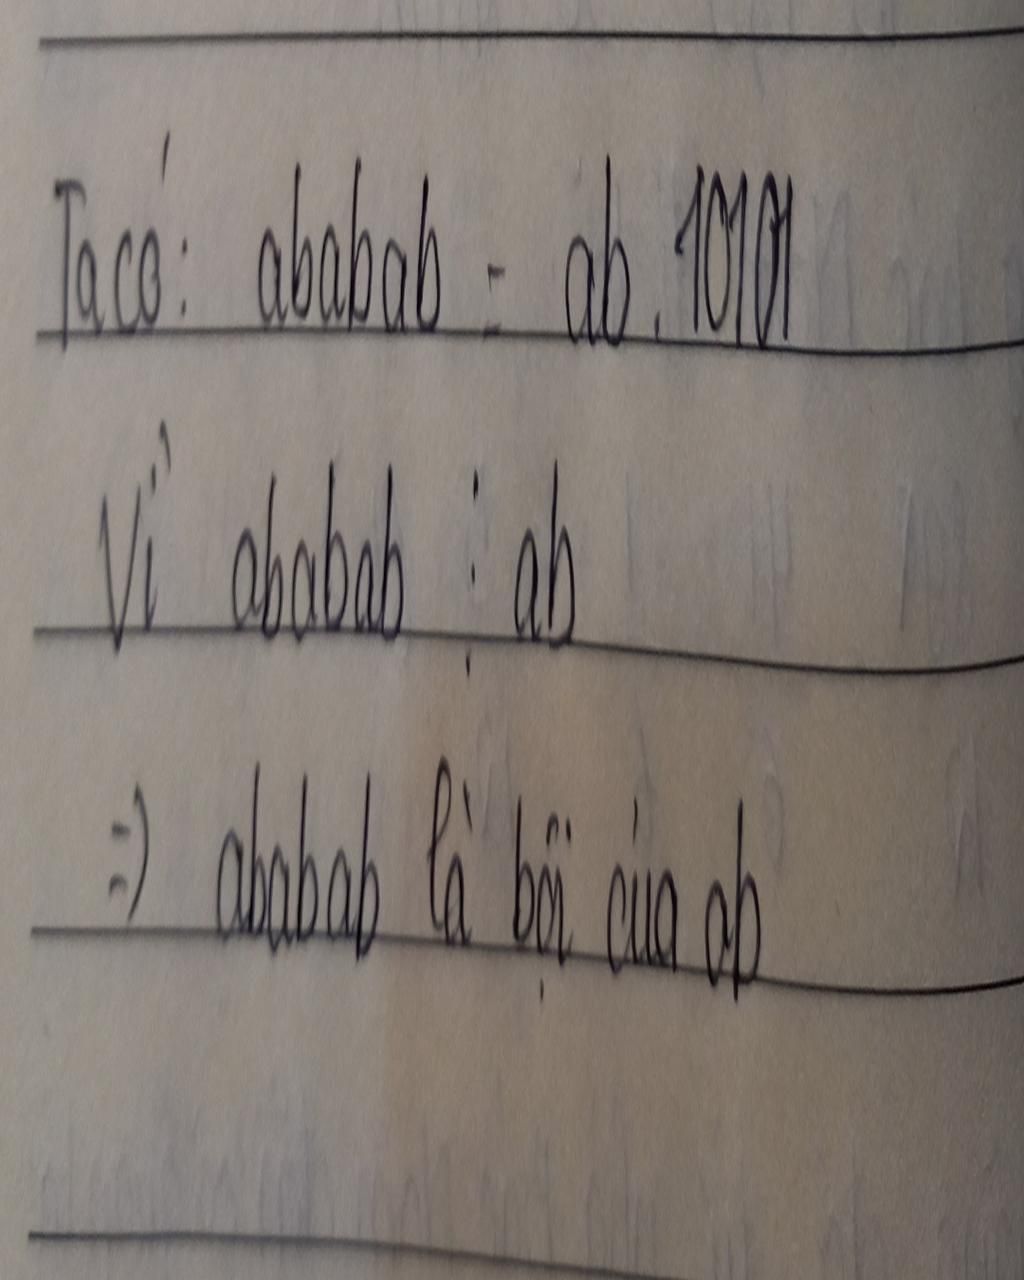 Ta có: ababab = ab.10101
Vì ababab ⋮ ab
=) ababab là bội của ab